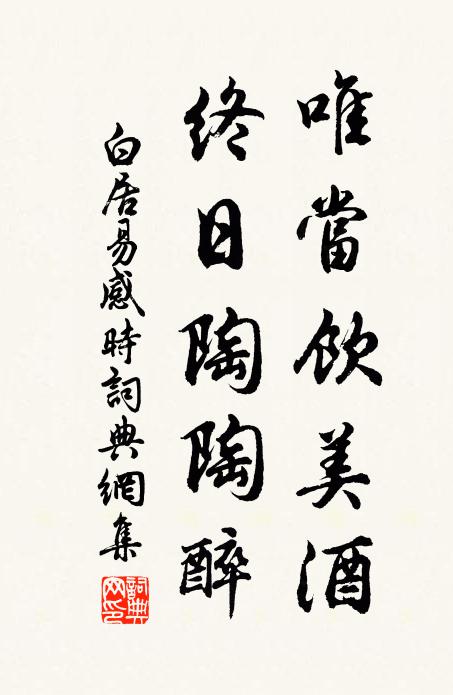 唯當飲美酒
終日陶陶醉
白居易感時詞典網集
詞典網印